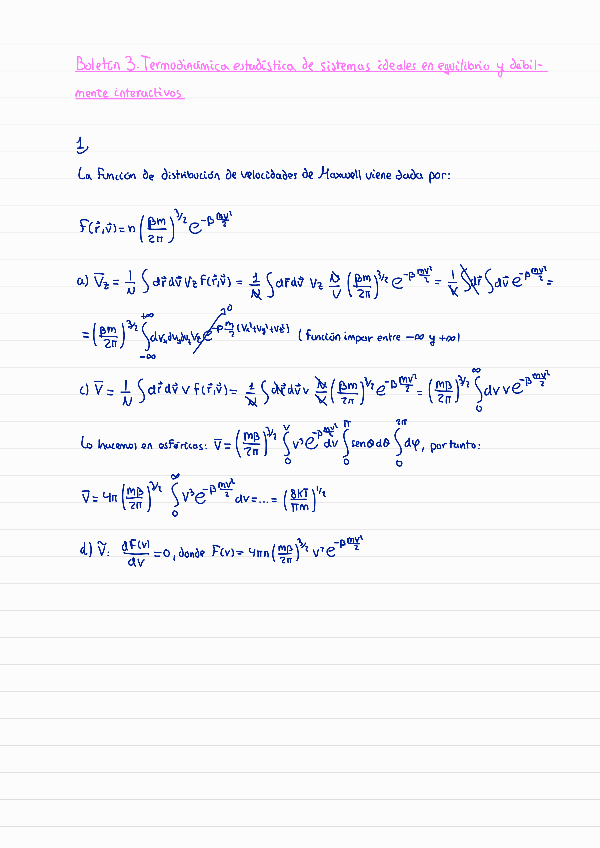 Boletín 3. Termodinámica estadística de sistemas ideales en equilibrio y débil-
mente interactivos
1
La función de distribución de velocidades de Maxwell viene dada por:
f(r⃗,v⃗) = n (βm/2π)^{3/2} e^{-β mv²/2}
a) V̄z = 1/N ∫ dr⃗ dv⃗ Vz f(r⃗,v⃗) = 1/N ∫ dr⃗ dv⃗ Vz N/V (βm/2π)^{3/2} e^{-β mv²/2} = 1/V ∫ dr⃗ ∫ dv⃗ e^{-β mv²/2} =
= (βm/2π)^{3/2} ∫_{-∞}^{+∞} dvx dvy dvz Vz e^{-β m/2 (Vx²+Vy²+Vz²)} → 0 (función impar entre -∞ y +∞)
c) V̄ = 1/N ∫ dr⃗ dv⃗ v f(r⃗,v⃗) = 1/N ∫ dr⃗ dv⃗ v N/V (βm/2π)^{3/2} e^{-β mv²/2} = (mβ/2π)^{3/2} ∫_0^∞ dv v e^{-β mv²/2}
Lo hacemos en esféricas: V̄ = (mβ/2π)^{3/2} ∫_0^v v³ e^{-β mv²/2} dv ∫_0^π senθ dθ ∫_0^{2π} dφ, por tanto:
V̄ = 4π (mβ/2π)^{3/2} ∫_0^∞ v³ e^{-β mv²/2} dv = ... = (8kT/πm)^{1/2}
d) Ṽ: dF(v)/dv = 0, donde F(v) = 4πn (mβ/2π)^{3/2} v² e^{-β mv²/2}